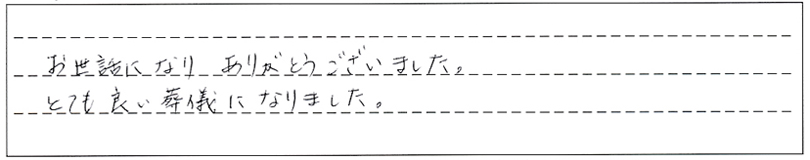 お世話になり ありがとうございました。
とても良い葬儀になりました。